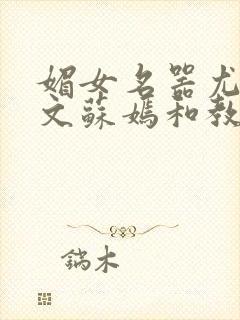 媚女名器尤
文蘇媽和教
鎬木